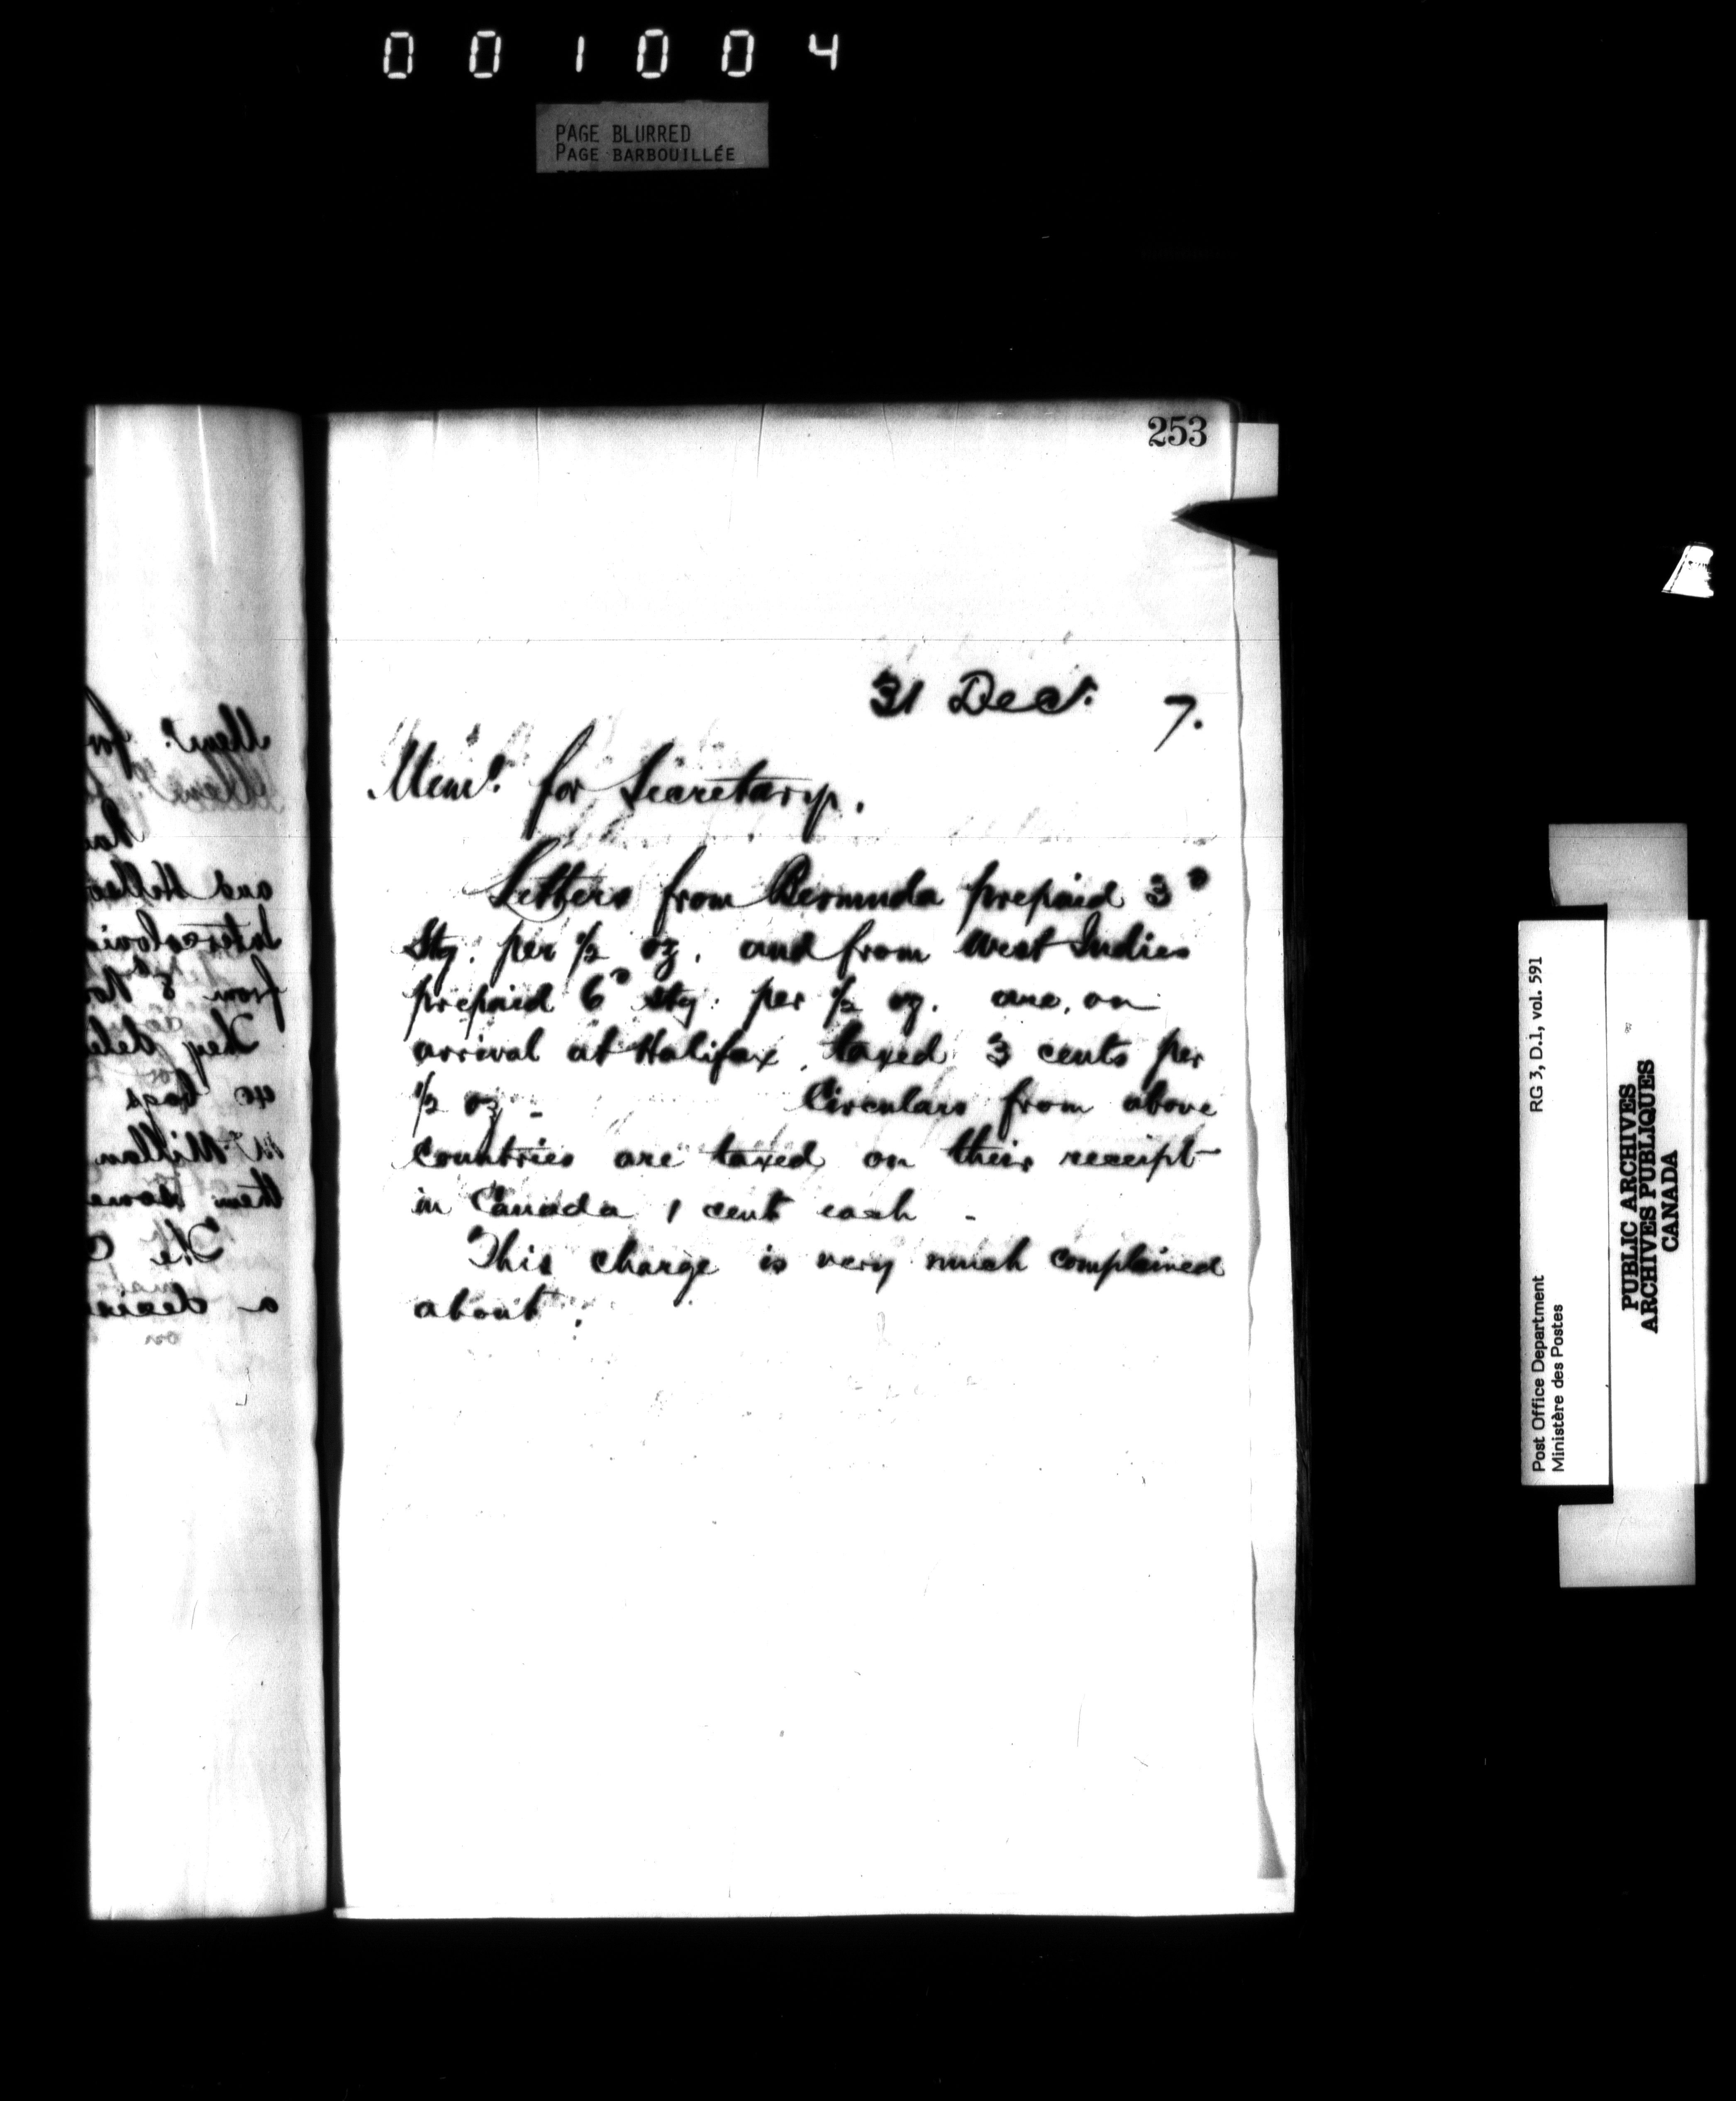 001004
PAGE BLURRED
PAGE BARBOUILLÉE
253
31 Decr. 7.
Memo. for Secretary.
Letters from Bermuda prepaid 3d
Stg. per ½ oz. and from West Indies
prepaid 6d stg. per ½ oz. are, on
arrival at Halifax, taxed 3 cents per
½ oz - Circulars from above
countries are taxed on their receipt
in Canada 1 cent each -
This charge is very much complained
about.
Post Office Department RG 3, D.1, vol. 591
Ministère des Postes
PUBLIC ARCHIVES
ARCHIVES PUBLIQUES
CANADA